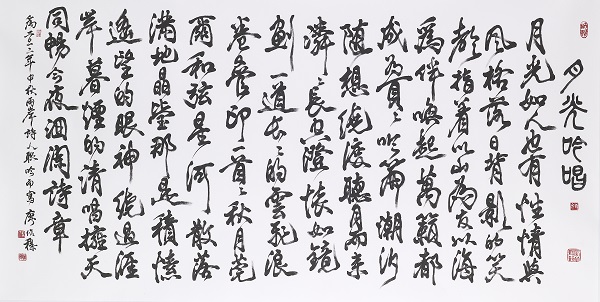 月光吟唱
月光如人也有性情與
風格落日背影的笑
都指着以山為友以海
為伴喚起萬籟都
成為員吟篇潮汐
隨想繞渡聽月而來
粼粼長只澄懷如鏡
劃一道长长的雲飛浪
卷疊印一首首秋月莞
爾和弦星河散落
滿地晶瑩那是積愫
遙望的眼神繞過涯
岸暮煙的清唱擁天
同暢今夜洄瀾詩章
年中秋兩岸詩人聯吟而寫廖